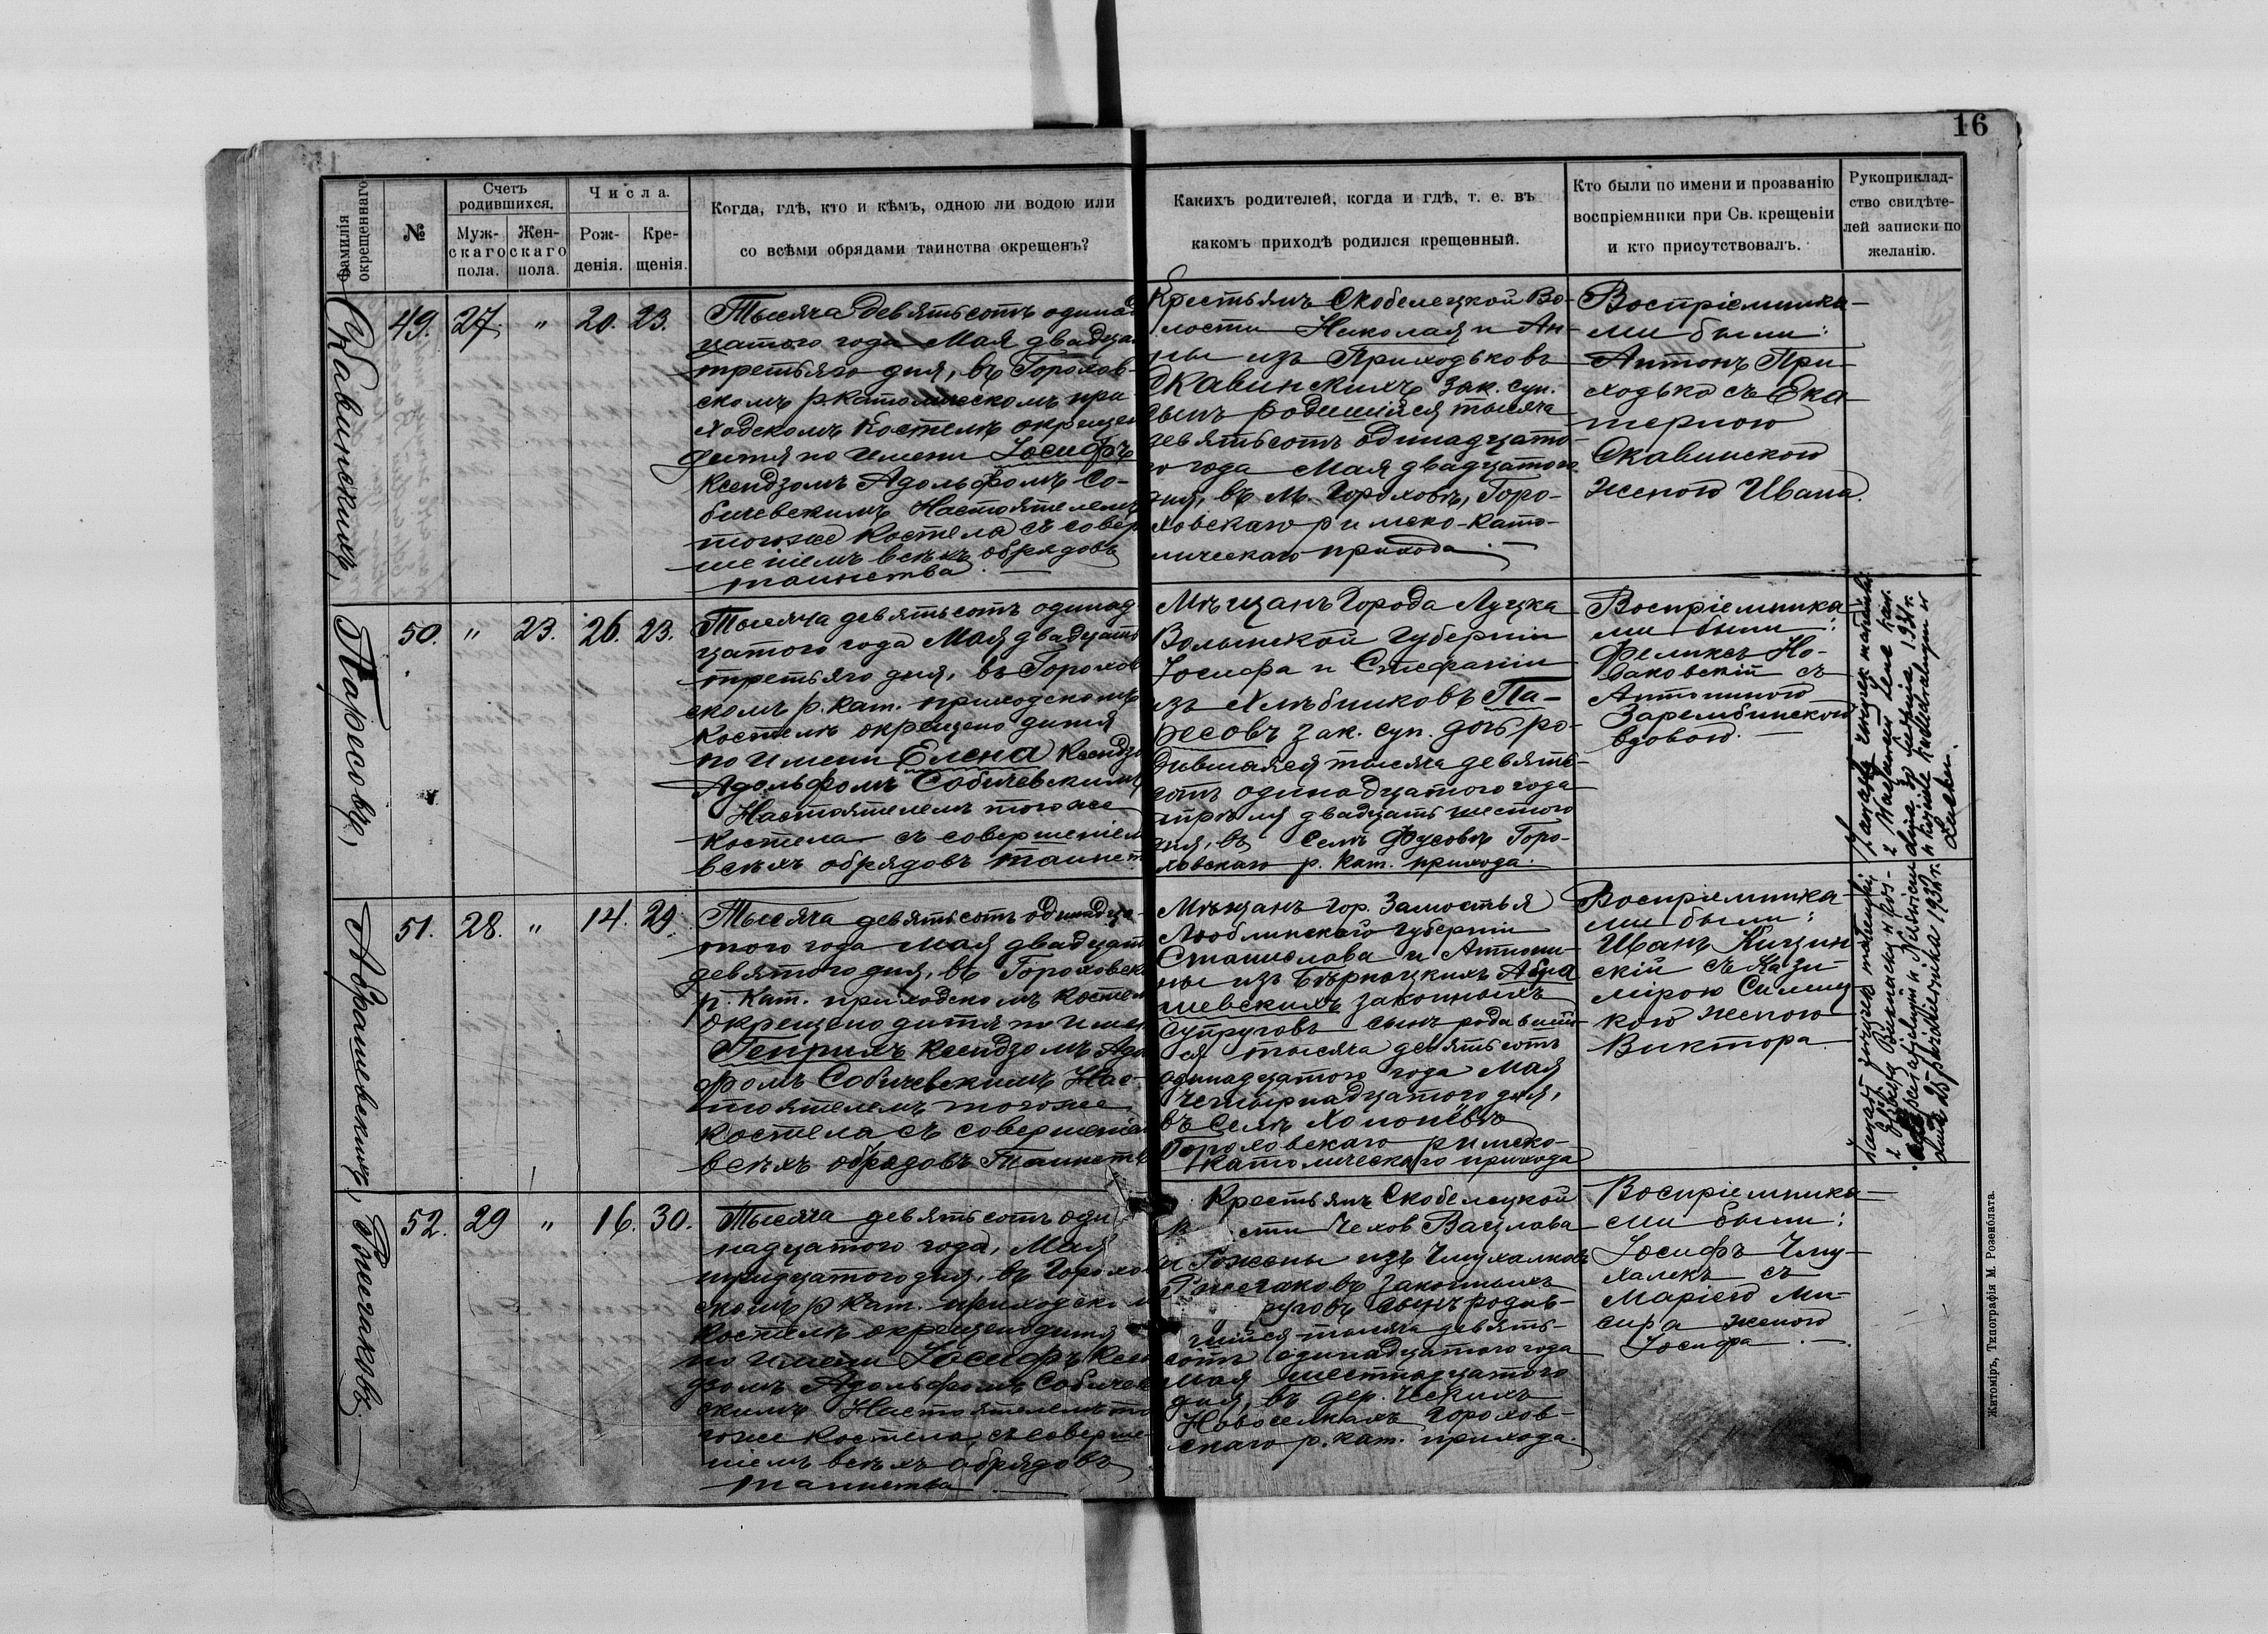 16
Фамилія окрещеннаго.
№
Счетъ родившихся.
Мужскаго пола.
Женскаго пола.
Числа.
Рожденія.
Крещенія.
Когда, гдѣ, кто и кѣмъ, одною ли водою или
со всѣми обрядами таинства окрещенъ?
Какихъ родителей, когда и гдѣ, т. е. въ
какомъ приходѣ родился крещенный.
Кто были по имени и прозванію
воспріемники при Св. крещеніи
и кто присутствовалъ.
Рукоприклад-
ство свидѣте-
лей записки по
желанію.
Скавинскихъ,
49. 27. " 20. 23.
Тысяча девятьсотъ одинад
цатого года Мая двадцат
третьяго дня, въ Горохов-
скомъ р. католическомъ при-
ходскомъ Костелѣ окрещен
дитя по имени Іосифъ
Ксендзомъ Адольфомъ Со-
бичевскимъ Настоятелемъ
тогоже Костела съ совер
шеніемъ всѣхъ обрядовъ
таинства. —
Крестьянъ Скобелецкой Во-
лости Николая и Ан-
ны изъ Приходьковъ
Скавинскихъ зак. суп.
сынъ родившійся тысяча
девятьсотъ одинадцато-
го года Мая двадцатого
дня, въ М. Гороховѣ, Горо-
ховскаго римско-като-
лическаго прихода. —
Воспріемника-
ми были:
Антонъ При-
ходько съ Ека-
териною
Скавинскою
женою Ивана.
Паресовъ,
50. " 23. 26. 23.
Тысяча девятьсотъ одинад
цатого года Мая двадцать
третьяго дня, въ Горохов
скомъ р. кат. приходскомъ
Костелѣ окрещено дитя
по имени Елена Ксендзо
Адольфомъ Собичевскимъ
Настоятелемъ тогоже
Костела съ совершеніем
всѣхъ обрядовъ таинст
Мѣщанъ Города Луцка
Волынской Губерніи
Іосифа и Стефаніи
изъ Хлѣбниковъ Па-
ресовъ зак. суп. дочь ро-
дившаяся тысяча девять-
сотъ одинадцатого года
апрѣля двадцать шестого
дня, въ Селѣ Фусовѣ Горо-
ховскаго р. кат. прихода.
Воспріемника
ми были:
Феликсъ Но-
ваковскій съ
Антониною
Зарембинскою
вдовою. —
zawarł związek małżeński
z
dnia 30 sierpnia 1931 r.
w kościele katedralnym w
Łucku.
Абрашевскихъ,
51. 28. " 14. 29.
Тысяча девятьсотъ одинадца-
того года Мая двадцат
девятого дня, въ Гороховск
р. кат. приходскомъ Костел
окрещено дитя по имен
Генрихъ Ксендзомъ Адо
фомъ Собичевскимъ Нас-
тоятелемъ тогоже
Костела съ совершеніе
всѣхъ обрядовъ таинств
Мѣщанъ гор. Замостья
Люблинской Губерніи
Станислава и Антони-
ны изъ Бѣрнацкихъ Абра
шевскихъ законныхъ
супруговъ сынъ родивші
ся тысяча девятьсотъ
одинадцатого года Мая
четырнадцатого дня,
въ Селѣ Холоневѣ
Гороховскаго римско-
католическаго прихода
Воспріемника
ми были:
Иванъ
скій съ Кази-
мірою
кою женою
Виктора.
zawarł związek małżeński
dnia 25 października 1932 r.
52. 29 " 16. 30.
Тысяча девятьсотъ оди
надцатого года, Мая
тридцатого дня, въ Горохо
скомъ р. кат. приходско
Костелѣ окрещено дитя
по имени Іосифъ Ксен
дзомъ Адольфомъ Собичев
скимъ Настоятелемъ то
гоже Костела, съ соверше
ніемъ всѣхъ обрядовъ
таинства. —
Крестьянъ Скобелецкой
сти Чехов Вацлава
и изъ Чмухалковъ
законныхъ
руговъ сынъ родив-
шійся тысяча девять-
сотъ одинадцатого года
мая шестнадцатого
дня, въ дер. Ческихъ
Новоселкахъ Горохов-
скаго р. кат. прихода.
Воспріемника-
ми были:
Іосифъ Чму-
халекъ съ
Маріею Ми-
сира женою
Іосифа. —
Житоміръ, Типографія М. Розенблата.